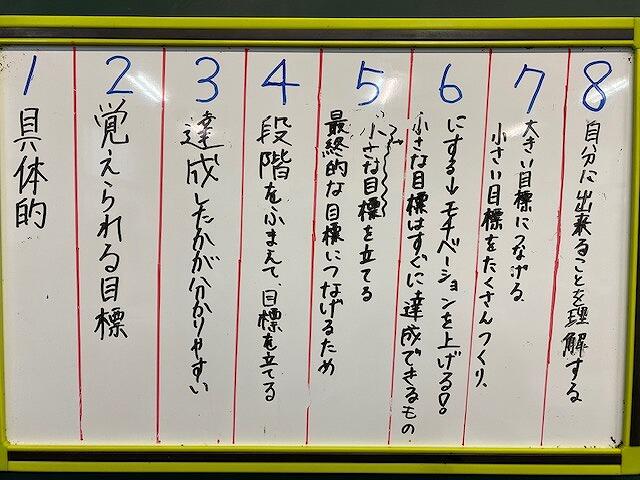 1
具体的
2
覚えられる目標
3
達成したかが分かりやすい
4
段階をふまえて、目標を立てる
5
最終的な目標につなげるため
小さな目標を立てる
6
小さな目標はすぐに達成できるもの
にする→モチベーションを上げる!!
7
小さい目標をたくさんつくり、
大きい目標につなげる
8
自分に出来ることを理解する